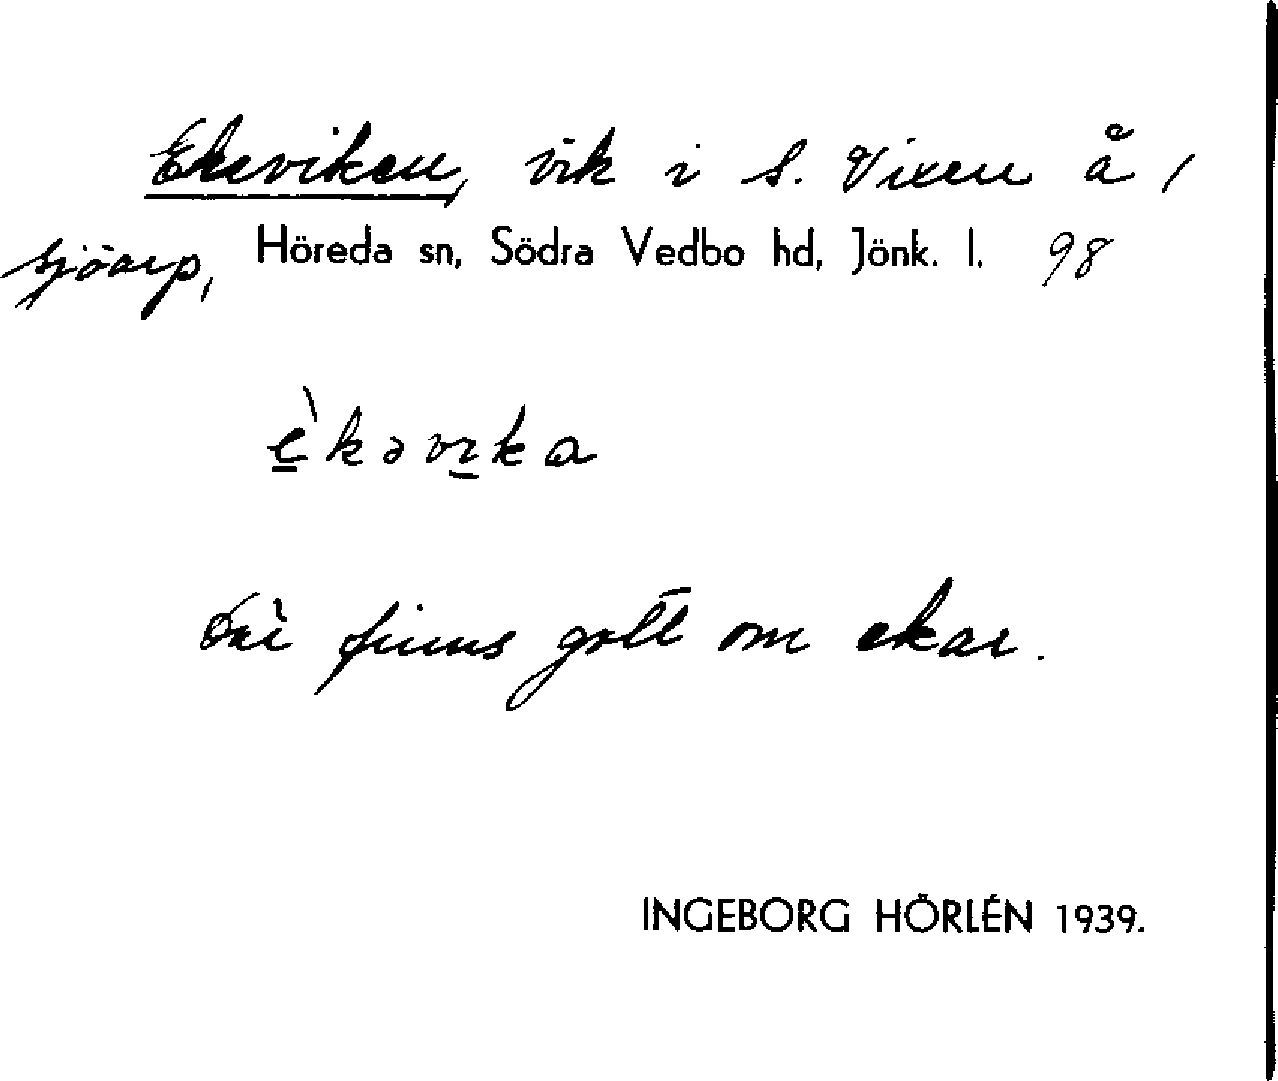 Ekeviken, vik i S. Vixen å /
Sjöarp, Höreda sn, Södra Vedbo hd, Jönk. l. 98
è̱kəvɪ̱ka
Där finns gott om ekar.
INGEBORG HÖRLÉN 1939.